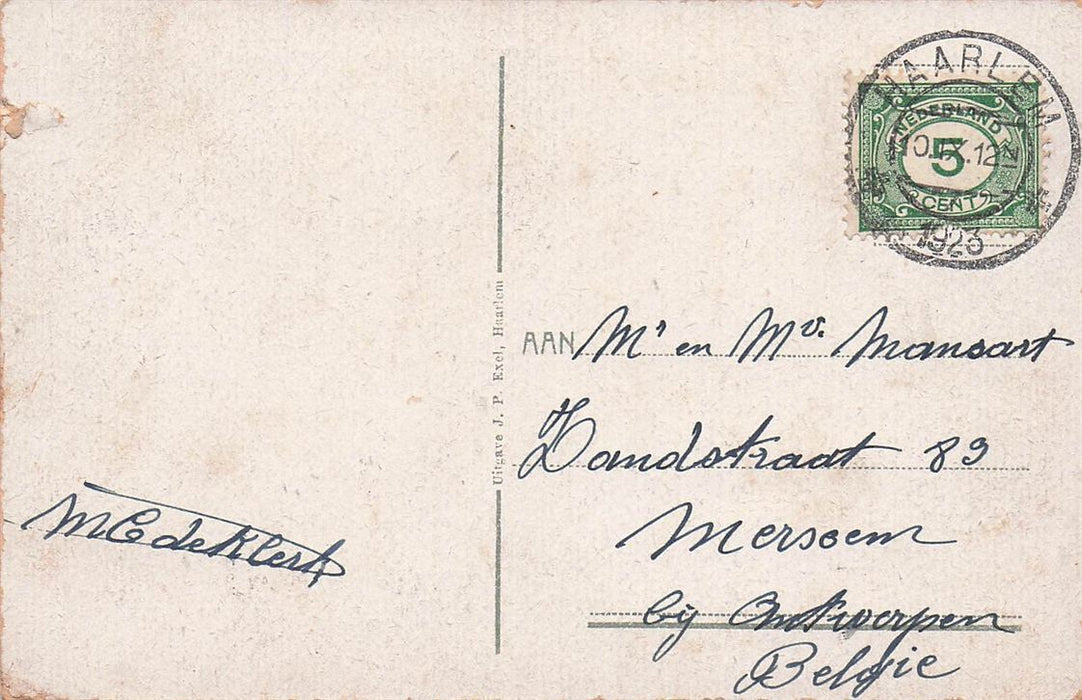 HAARLEM
NEDERLAND
5
CENT
1923
Uitgave J. P. Exel, Haarlem
AAN Mr en Mv. Mansart
Zandstraat 83
Merscem
bij Antwerpen
Belgie
M C de Klerk